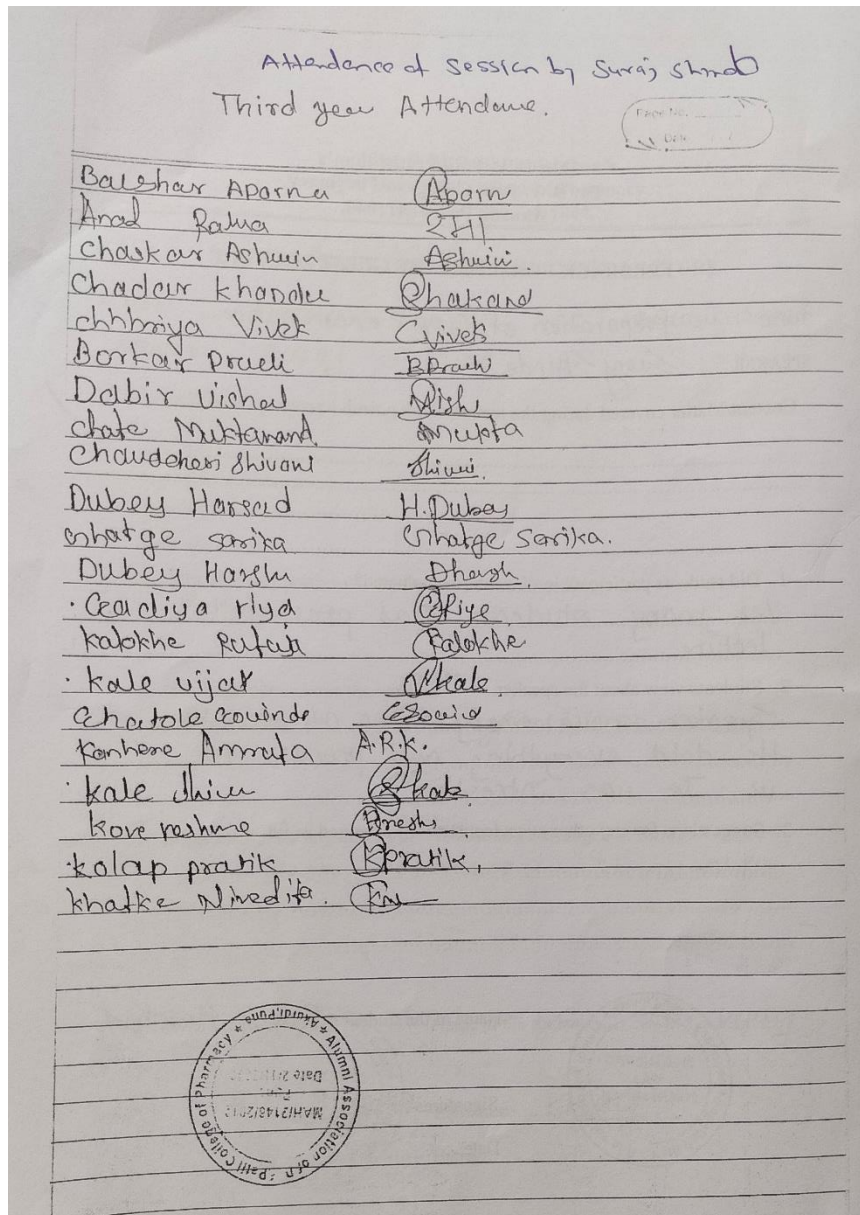 Attendance of session by Suraj
Third year Attendance.
Page No.
Date
Balshar Aparna Aparn
Anad Rama रमा
Chaskar Ashwin Ashwini.
Chadar khandu Chakand
chhbriya Vivek Cvivek
Borkar Prachi B.Prachi
Dabir vishal Vish
chate Muktanand. Mukta
Chaudchari Shivani Shivni.
Dubey Harsad H.Dubey
Ghatge sarika Ghatge Sarika.
Dubey Harshu Dharsh
Geadiya riya GRiye
kalokhe Rutuja Ralokhe
kale vijay Vkale
Ghatole Govinde Govind
Kanhere Amruta A.R.K.
kale Shivu Skale
kore reshme
kolap pratik Kpratik,
khatke Nivedita. KN
Alumni Association of Patil College of Pharmacy * Akurdi, Pune *
MAH/2148/2012
Pune
Date